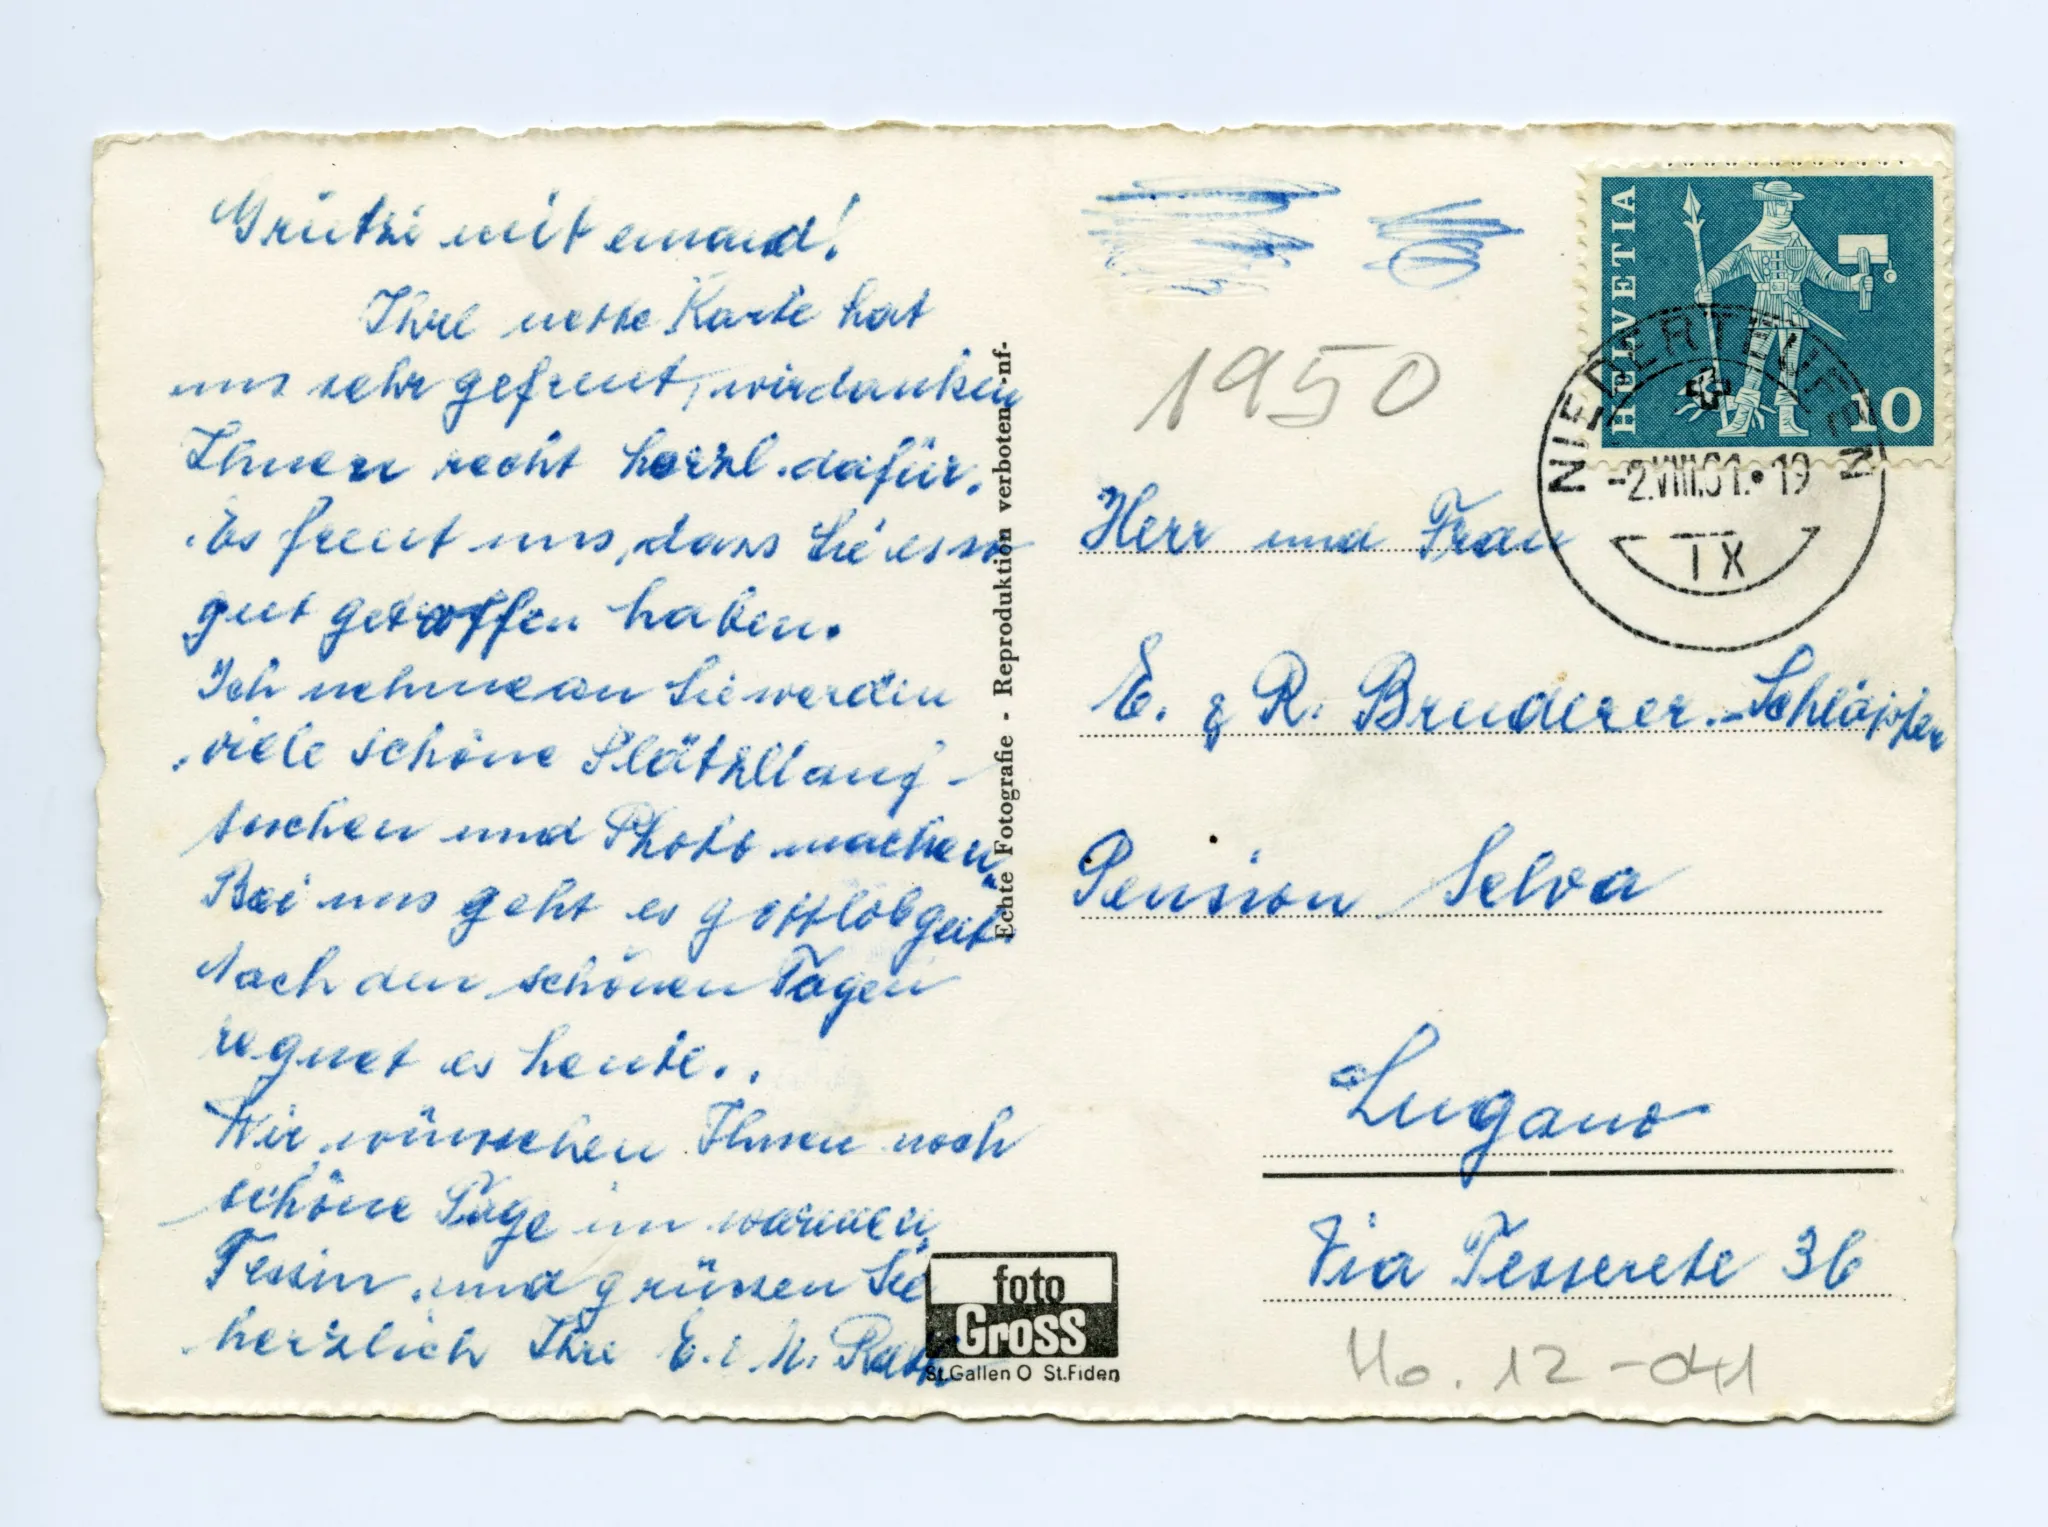 Grüetzi mit enand!
Ihre nette Karte hat
uns sehr gefreut, wir danken
Ihnen recht herzl. dafür.
Es freut uns, dass Sie es so
gut getroffen haben.
Ich nehme an Sie werden
viele schöne Plätzli auf-
suchen und Photo machen.
Bei uns geht es gottlob gut.
Nach den schönen Tagen
regnet es heute..
Wir wünschen Ihnen noch
schöne Tage im warmen
Tessin, und grüssen Sie
herzlich Ihre E. & M.
Echte Fotografie - Reproduktion verboten -nf-
foto
Gross
St.Gallen O St.Fiden
HELVETIA
10
NIEDERTEUFEN
-2.VIII.61.•19
1950
Herr und Frau
E. & R. Bruderer-Schläpfer
Pension Selva
Lugano
Via Tesserete 36
12-041